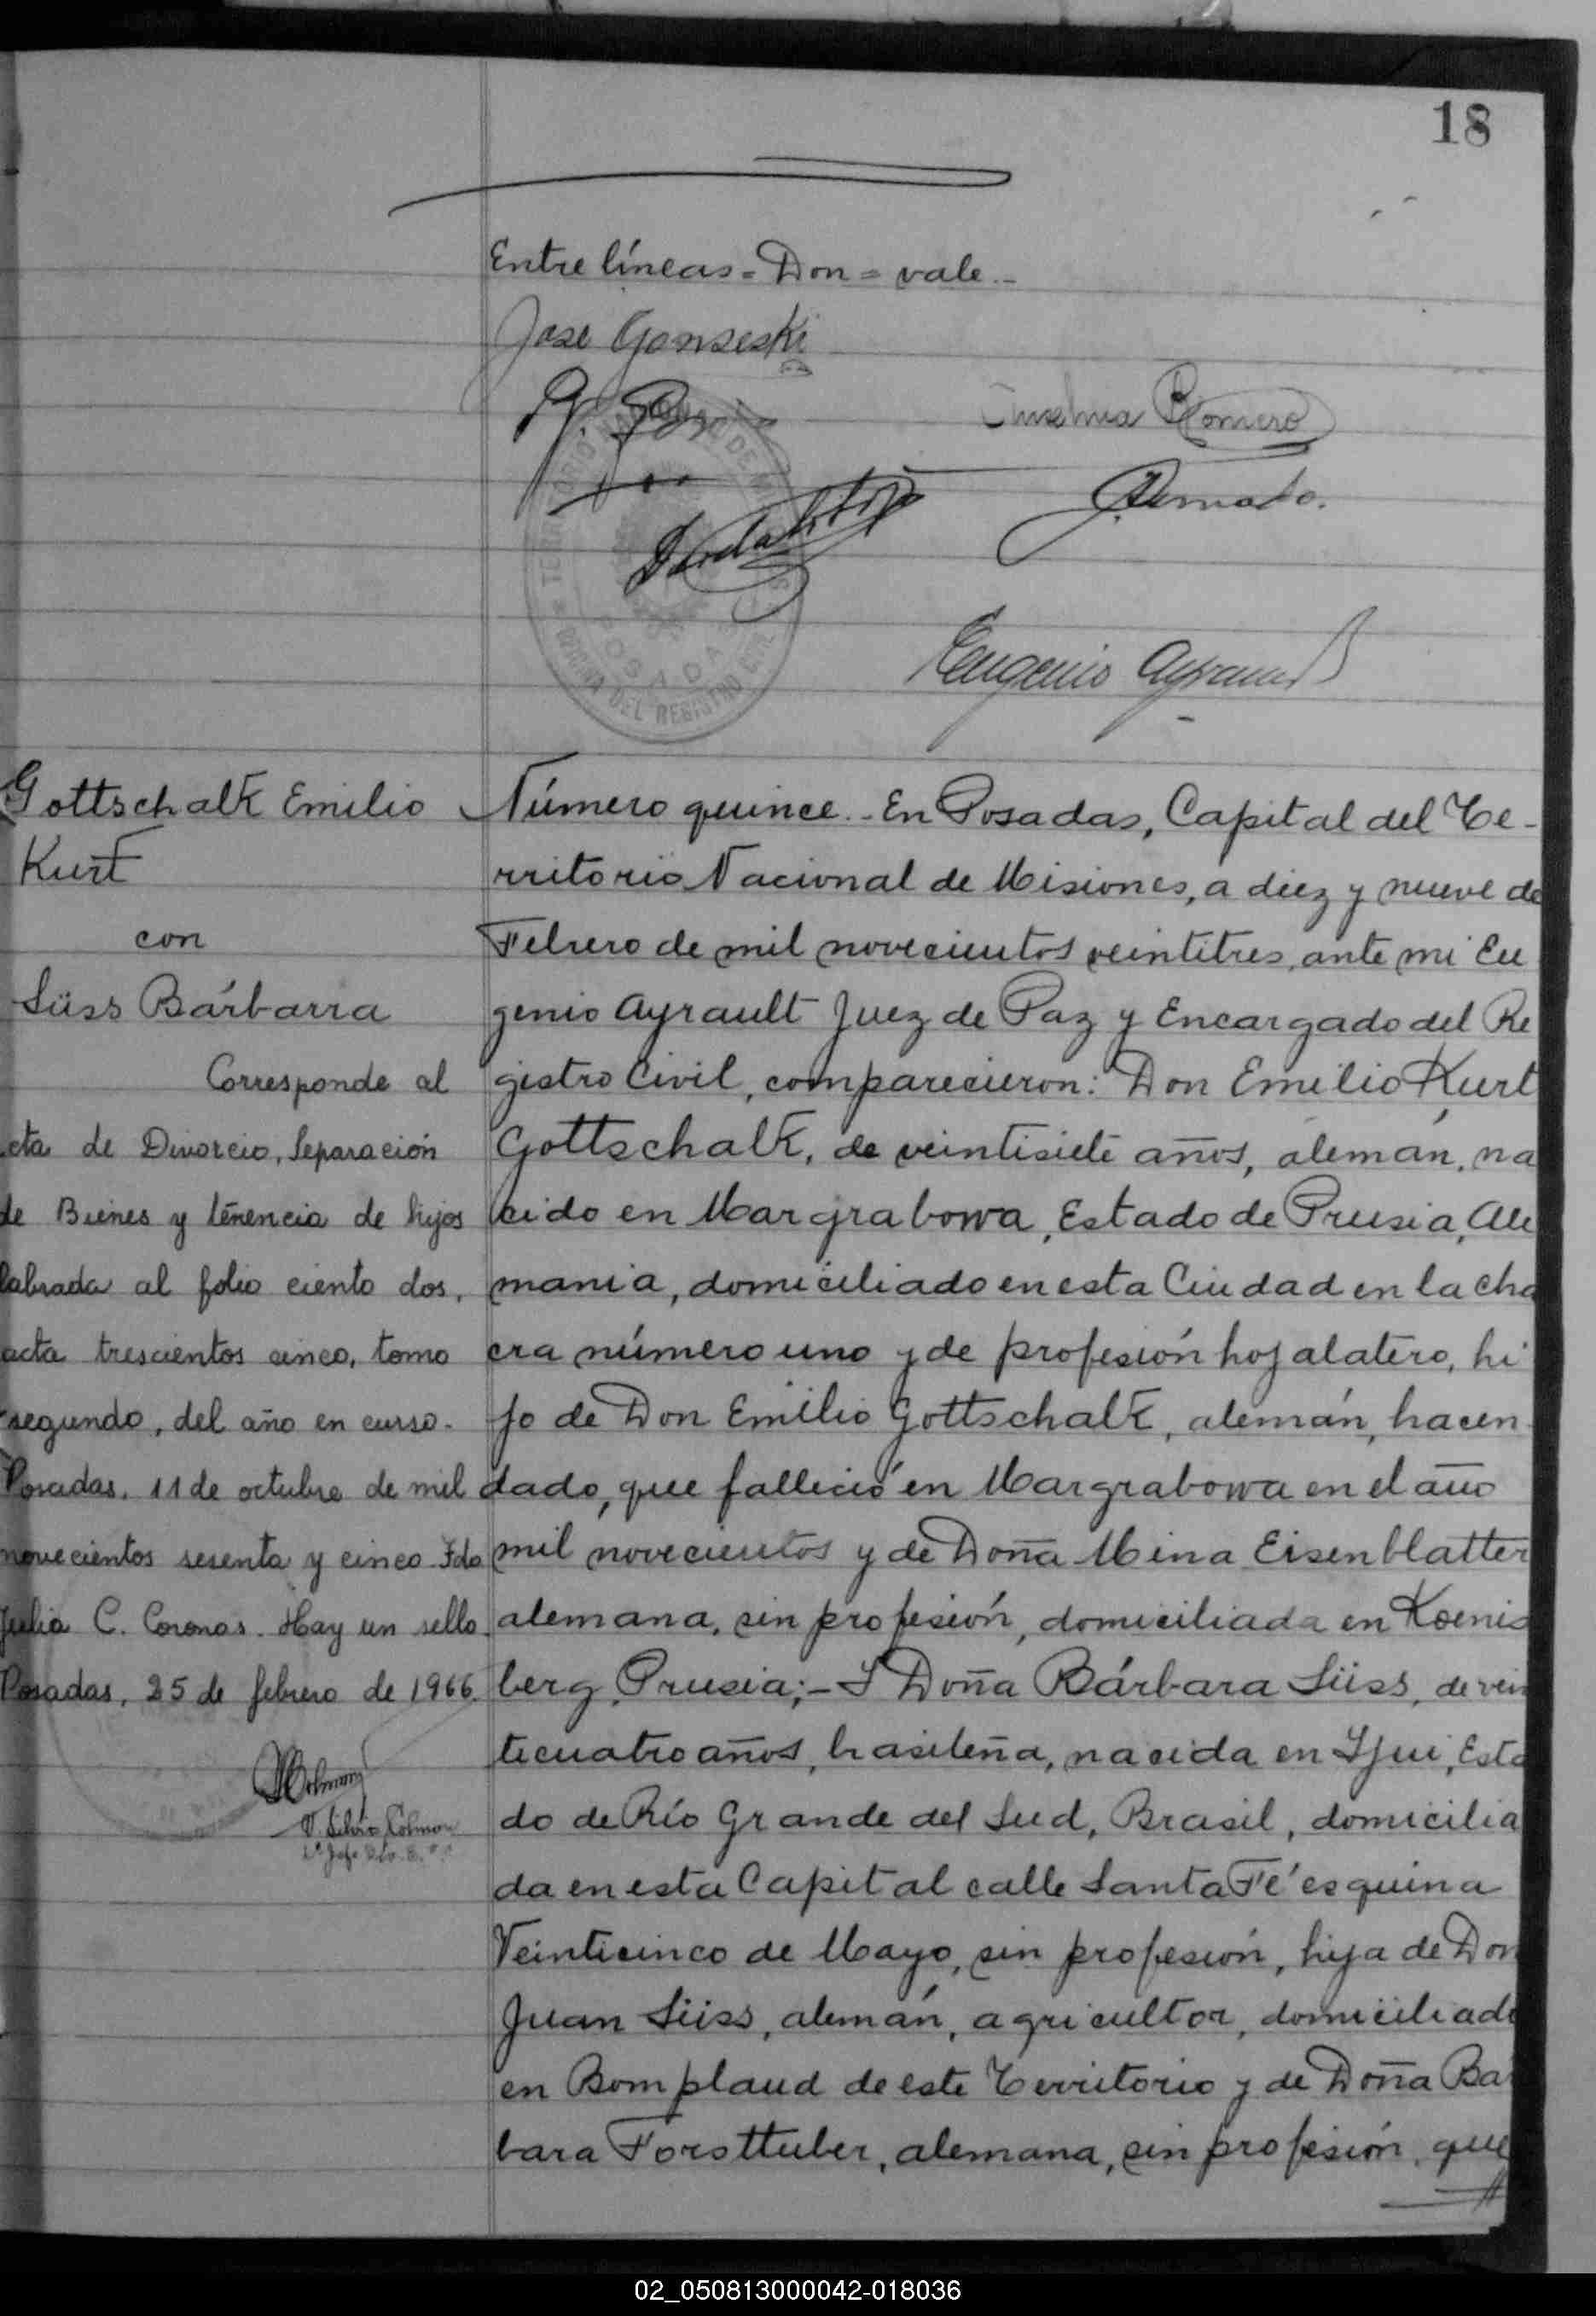 18
Entre líneas = Don = vale.-
Jose Gonseski
Anselma Romero
Eugenio Ayrault
TERRITORIO NACIONAL DE MISIONES
OFICINA DEL REGISTRO CIVIL
POSADAS
Gottschalk Emilio
Kurt
con
Süss Bárbarra
Corresponde al
cta de Divorcio, Separación
de Bienes y tenencia de hijos
labrada al folio ciento dos,
acta trescientos cinco, tomo
segundo, del año en curso.-
Posadas, 11 de octubre de mil
novecientos sesenta y cinco. Fdo
Julia C. Coronas. Hay un sello.
Posadas, 25 de febrero de 1966.
V. Silvio Colman
Número quince.- En Posadas, Capital del Te-
rritorio Nacional de Misiones, a diez y nueve de
Febrero de mil novecientos veintitres, ante mi Eu
genio Ayrault Juez de Paz y Encargado del Re
gistro Civil, comparecieron: Don Emilio Kurt
Gottschalk, de veintisiete años, alemán, na
cido en Margrabowa, Estado de Prusia, Ale
mania, domiciliado en esta Ciudad en la cha
cra número uno y de profesión hojalatero, hi
jo de Don Emilio Gottschalk, alemán, hacen
dado, que falleció en Margrabowa en el año
mil novecientos y de Doña Mina Eisenblatter
alemana, sin profesión, domiciliada en Koenis
berg, Prusia;- Y Doña Bárbara Süss, de vein
ticuatro años, brasileña, nacida en Yjui, Esta
do de Río Grande del Sud, Brasil, domicilia
da en esta Capital calle Santa Fé esquina
Veinticinco de Mayo, sin profesión, hija de Don
Juan Süss, alemán, agricultor, domiciliado
en Bompland de este Territorio y de Doña Bár
bara Forsttuber, alemana, sin profesión, que
02_050813000042-018036